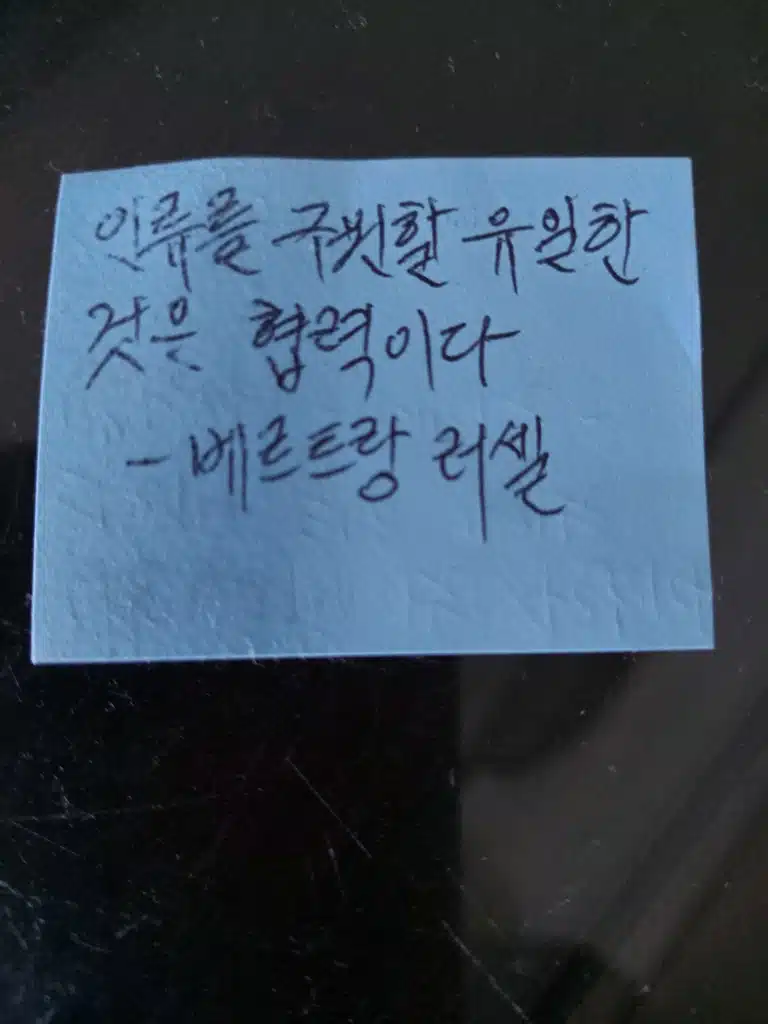 인류를 구원할 유일한
것은 협력이다
- 베르트랑 러셀